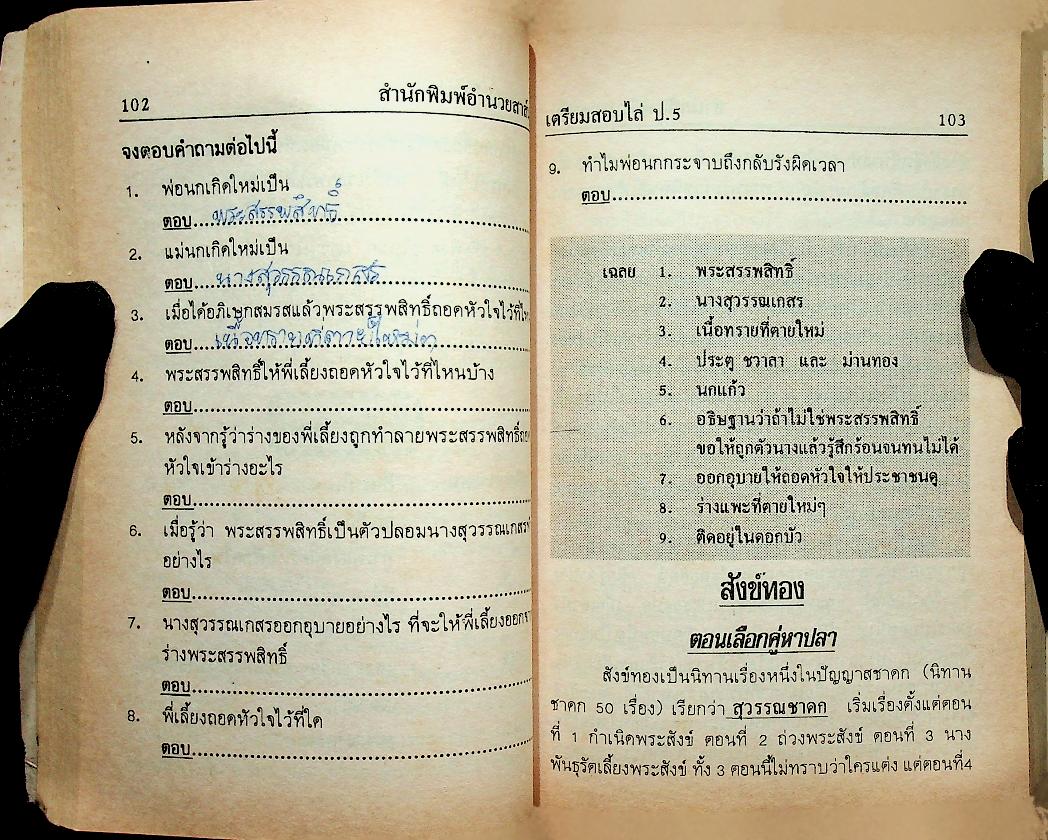 102 สำนักพิมพ์อำนวยสาส์
จงตอบคำถามต่อไปนี้
1. พ่อนกเกิดใหม่เป็น
ตอบ พระสรรพสิทธิ์
2. แม่นกเกิดใหม่เป็น
ตอบ นางสุวรรณเกสร
3. เมื่อได้อภิเษกสมรสแล้วพระสรรพสิทธิ์ถอดหัวใจไว้ที่ไห
ตอบ เนื้อทรายที่ตายใหม่ๆ
4. พระสรรพสิทธิ์ให้พี่เลี้ยงถอดหัวใจไว้ที่ไหนบ้าง
ตอบ
5. หลังจากรู้ว่าร่างของพี่เลี้ยงถูกทำลายพระสรรพสิทธิ์
หัวใจเข้าร่างอะไร
ตอบ
6. เมื่อรู้ว่า พระสรรพสิทธิ์เป็นตัวปลอมนางสุวรรณเกสร
อย่างไร
ตอบ
7. นางสุวรรณเกสรออกอุบายอย่างไร ที่จะให้พี่เลี้ยงออก
ร่างพระสรรพสิทธิ์
ตอบ
8. พี่เลี้ยงถอดหัวใจไว้ที่ใด
ตอบ
เตรียมสอบไล่ ป.5 103
9. ทำไมพ่อนกกระจาบถึงกลับรังผิดเวลา
ตอบ
เฉลย 1. พระสรรพสิทธิ์
2. นางสุวรรณเกสร
3. เนื้อทรายที่ตายใหม่
4. ประตู ชวาลา และ ม่านทอง
5. นกแก้ว
6. อธิษฐานว่าถ้าไม่ใช่พระสรรพสิทธิ์
ขอให้ถูกตัวนางแล้วรู้สึกร้อนจนทนไม่ได้
7. ออกอุบายให้ถอดหัวใจให้ประชาชนดู
8. ร่างแพะที่ตายใหม่ๆ
9. ติดอยู่ในดอกบัว
สังข์ทอง
ตอนเลือกคู่หาปลา
สังข์ทองเป็นนิทานเรื่องหนึ่งในปัญญาสชาดก (นิทาน
ชาดก 50 เรื่อง) เรียกว่า สุวรรณชาดก เริ่มเรื่องตั้งแต่ตอน
ที่ 1 กำเนิดพระสังข์ ตอนที่ 2 ถ่วงพระสังข์ ตอนที่ 3 นาง
พันธุรัตเลี้ยงพระสังข์ ทั้ง 3 ตอนนี้ไม่ทราบว่าใครแต่ง แต่ตอนที่4